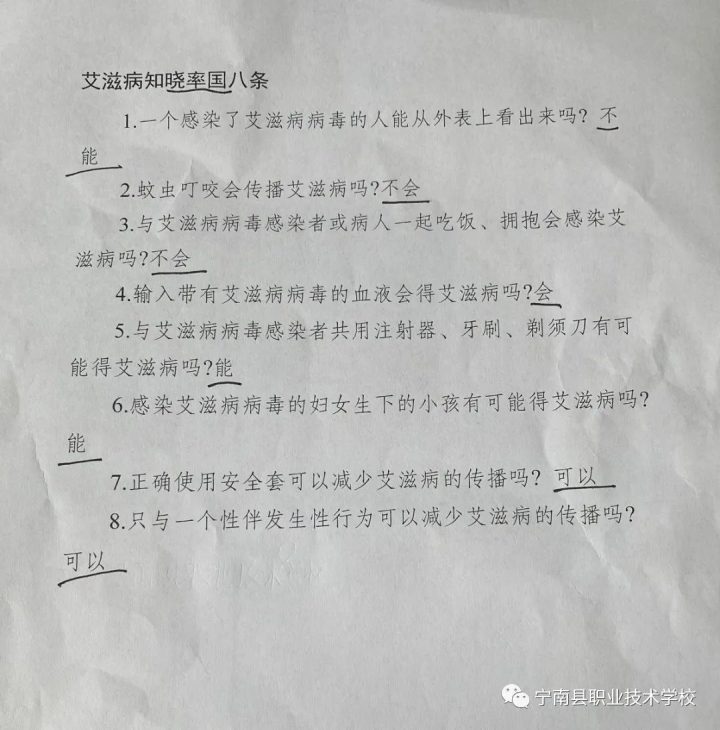 艾滋病知晓率国八条
1.一个感染了艾滋病病毒的人能从外表上看出来吗? 不
能
2.蚊虫叮咬会传播艾滋病吗?不会
3.与艾滋病病毒感染者或病人一起吃饭、拥抱会感染艾
滋病吗?不会
4.输入带有艾滋病病毒的血液会得艾滋病吗?会
5.与艾滋病病毒感染者共用注射器、牙刷、剃须刀有可
能得艾滋病吗?能
6.感染艾滋病病毒的妇女生下的小孩有可能得艾滋病吗?
能
7.正确使用安全套可以减少艾滋病的传播吗? 可以
8.只与一个性伴发生性行为可以减少艾滋病的传播吗?
可以
宁南县职业技术学校